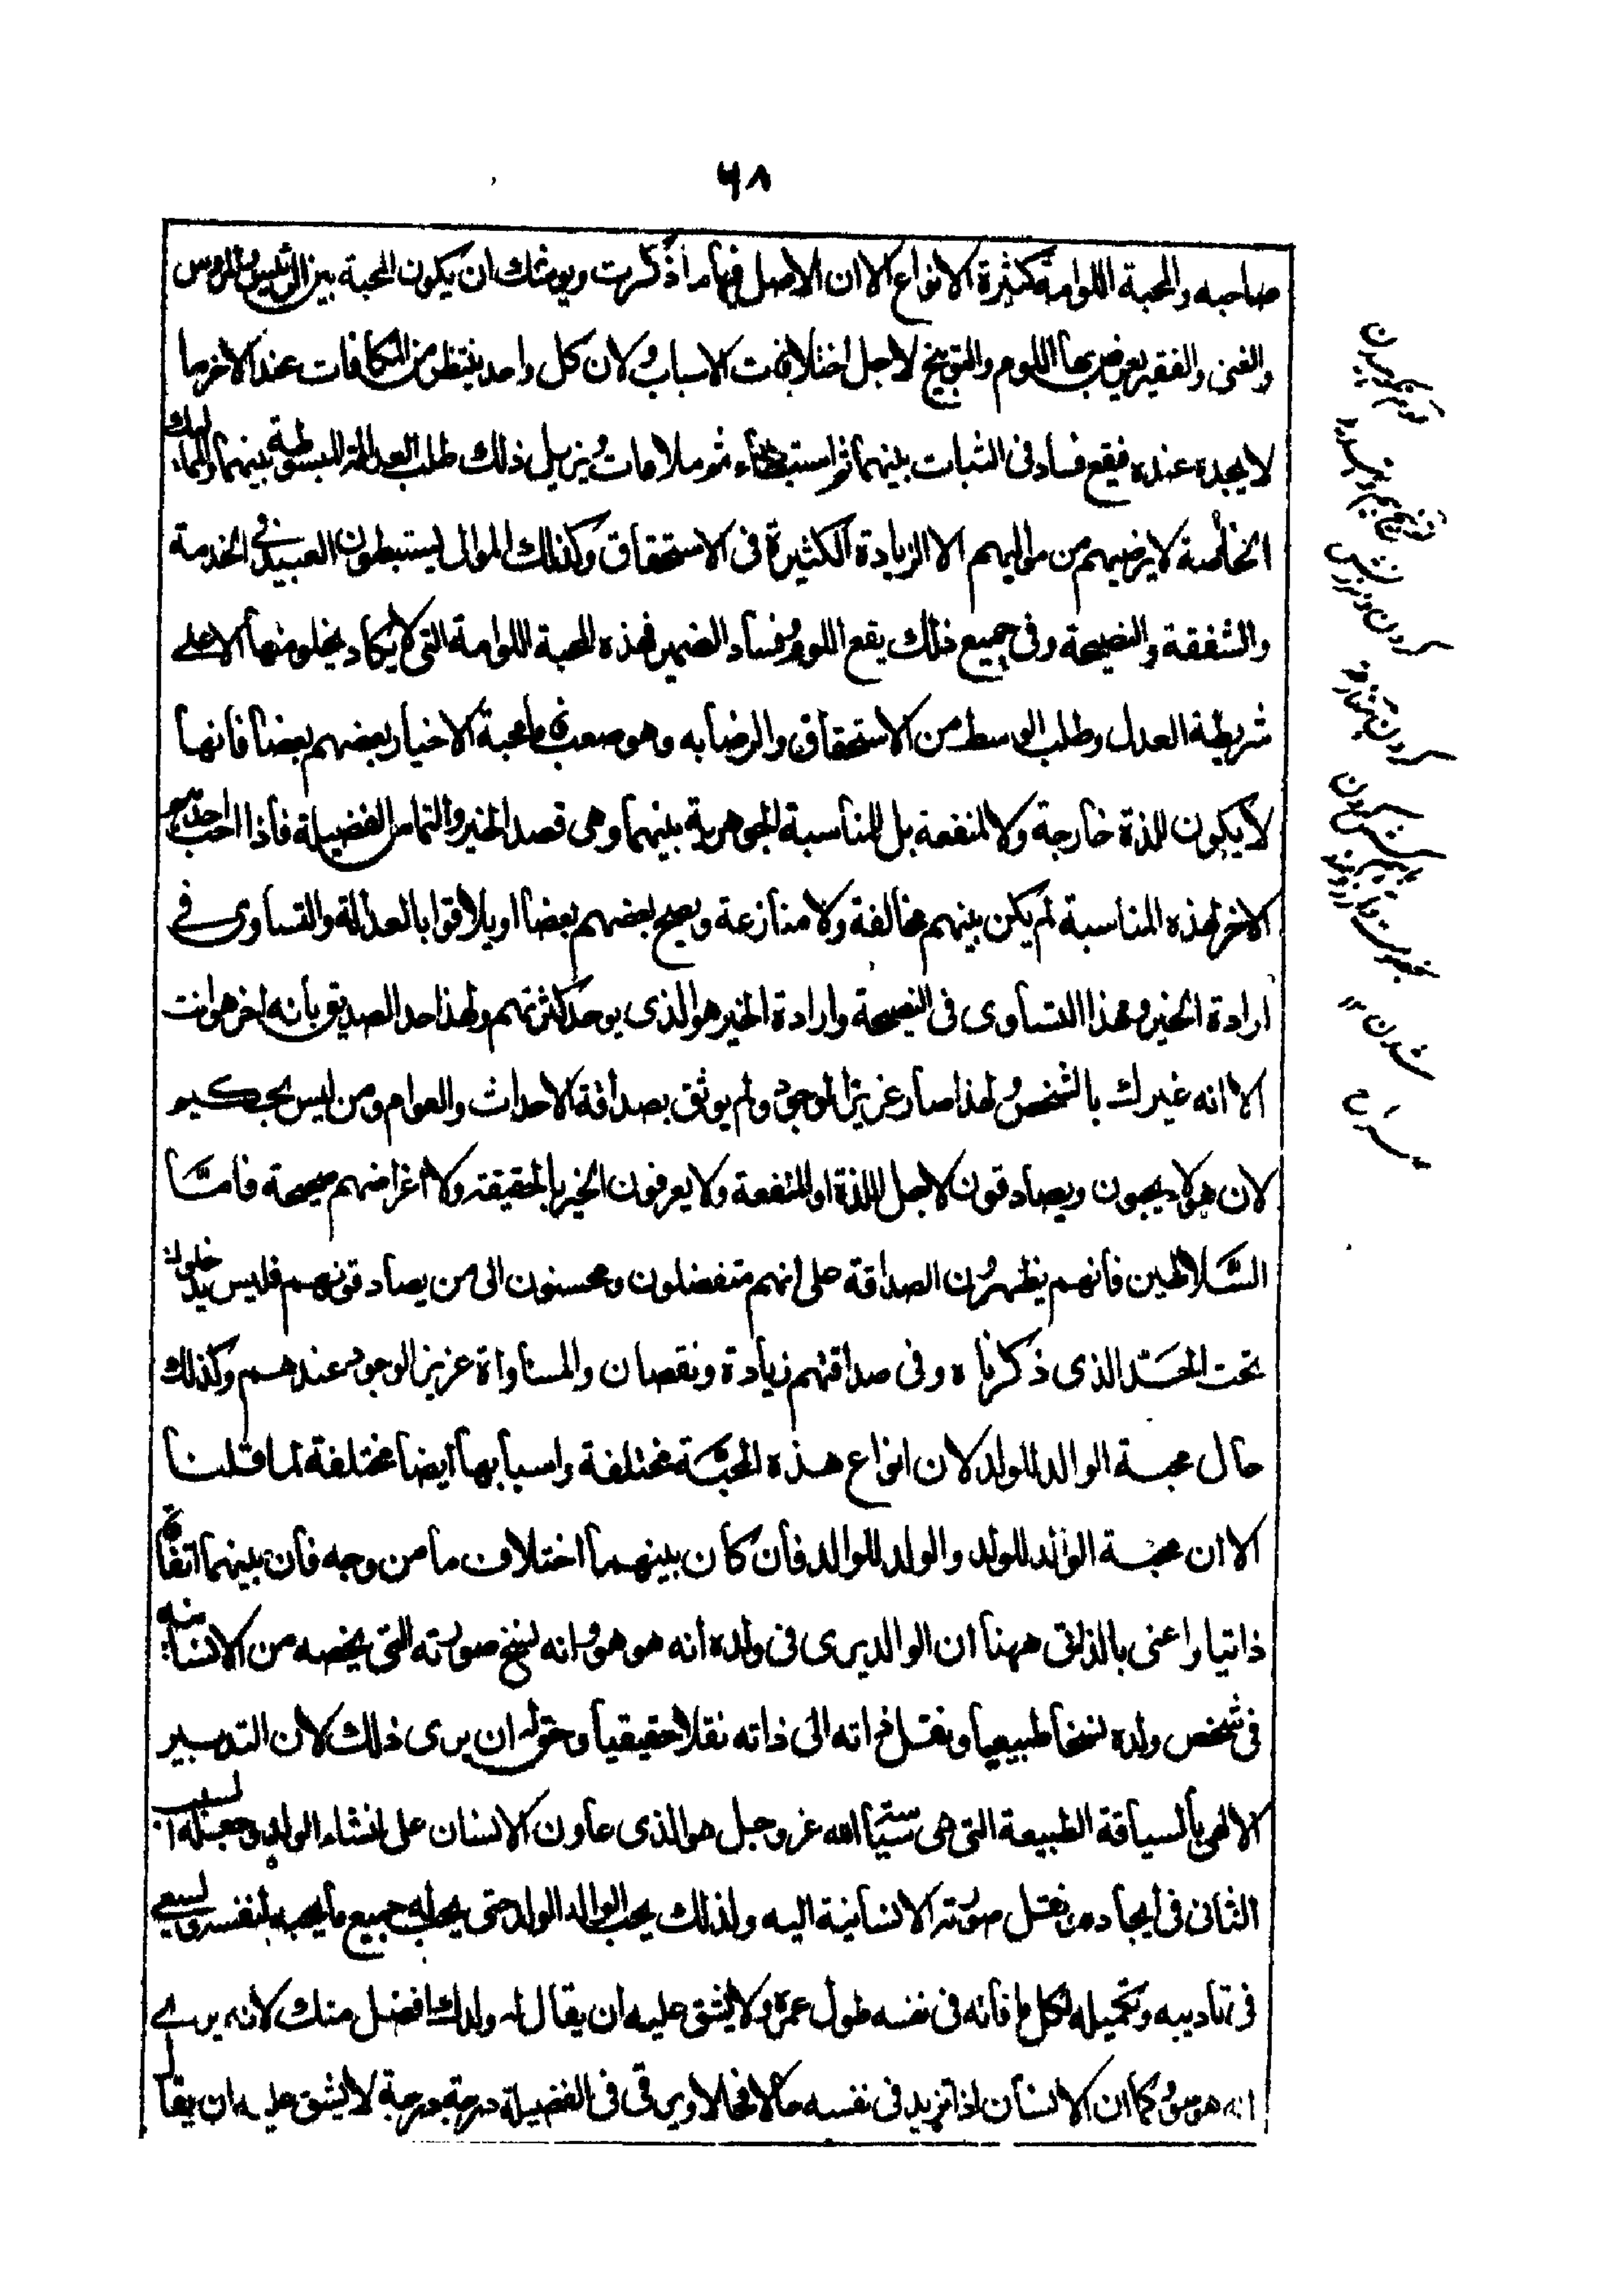 ۶۸
صاحبه والمحبة اللوامة كثيرة الانواع الا ان الاصل فيها ما ذكرت ويوشك ان يكون المحبة بين الرئيس والمرؤس
والغنى والفقير يعرض بها اللوم والتوبيخ لاجل اختلافات الاسباب ولان كل واحد ينتظر من المكافات عند الاخر ما
لا يجده عنده فيقع فساد فى الثبات بينهما ثم استبطاء ثم ملامات ويزيل ذلك طلب العدالة المبسوطة بينهما والمماليك
الخاصة لا يرضيهم من مواليهم الا الزيادة الكثيرة فى الاستحقاق وكذلك الموالى يستبطون العبيد فى الخدمة
والشفقة والنصيحة وفى جميع ذلك يقع اللوم وفساد الضمير فهذه المحبة اللوامة التى لا يكاد يخلو منها الا على
شريطة العدل وطلب الوسط من الاستحقاق والرضا به وهو صعب فاما محبة الاخيار بعضهم بعضا فانها
لا يكون للذة خارجة ولا لمنفعة بل للمناسبة الجوهرية بينهما وهى قصد الخير والتماس الفضيلة فاذا احب احدهم
الاخر لهذه المناسبة لم يكن بينهم مخالفة ولا منازعة وبعضهم بعضا او يلاقوا بالعدالة والتساوى فى
ارادة الخير وهذا التساوى فى النصيحة وارادة الخير هو الذى يوحد كثرتهم ولهذا حد الصديق بانه اخر هو انت
الا انه غيرك بالشخص ولهذا صار عزيز الوجود ولم يوثق بصداقة الاحداث والعوام ومن ليس بحكيم
لان هؤلاء يحبون ويصادقون لاجل اللذة او المنفعة ولا يعرفون الخير بالحقيقة ولا اغراضهم صحيحة فامّا
السّلاطين فانهم يظهرون الصداقة على انهم متفضلون ومحسنون الى من يصادقونهم فليس يدخلون
تحت الحدّ الذى ذكرناه وفى صداقتهم زيادة ونقصان والمساواة عزيز الوجود عندهم وكذلك
حال محبة الوالد للولد لان انواع هذه المحبّة مختلفة واسبابها ايضا مختلفة لما قلنا
الا ان محبّة الوالد للولد والولد للوالد فان كان بينهما اختلاف ما من وجه فان بينهما اتفاقا
ذاتيا واعنى بالذاتى ههنا ان الوالد يرى فى ولده انه هو هو وانه نسخ صورته التى يخصه من الانسانية
فى شخص ولده نسخا طبيعيا ونقل ذاته الى ذاته نقلا حقيقيا وحق له ان يرى ذلك لان التدبير
الالهى بالسياقة الطبيعة التى هى سيّاسة الله عز وجل هو الذى عاون الانسان على انشاء الولد وجعله السبب
الثانى فى ايجاده ونقل صورته الانسانية اليه ولذلك يحب الوالد الولد حتى يحب له جميع ما يحبه لنفسه ويسعى
فى تاديبه وتكميله لكل ما فاته فى نفسه طول عمره ولا يشق عليه ان يقال له ولدك افضل منك لانه يرى
انه هو هو وكما ان الانسان اذا تزيد فى نفسه حالا فحالا ويرقى فى الفضيلة درجة درجة لا يشق عليه ان يقال